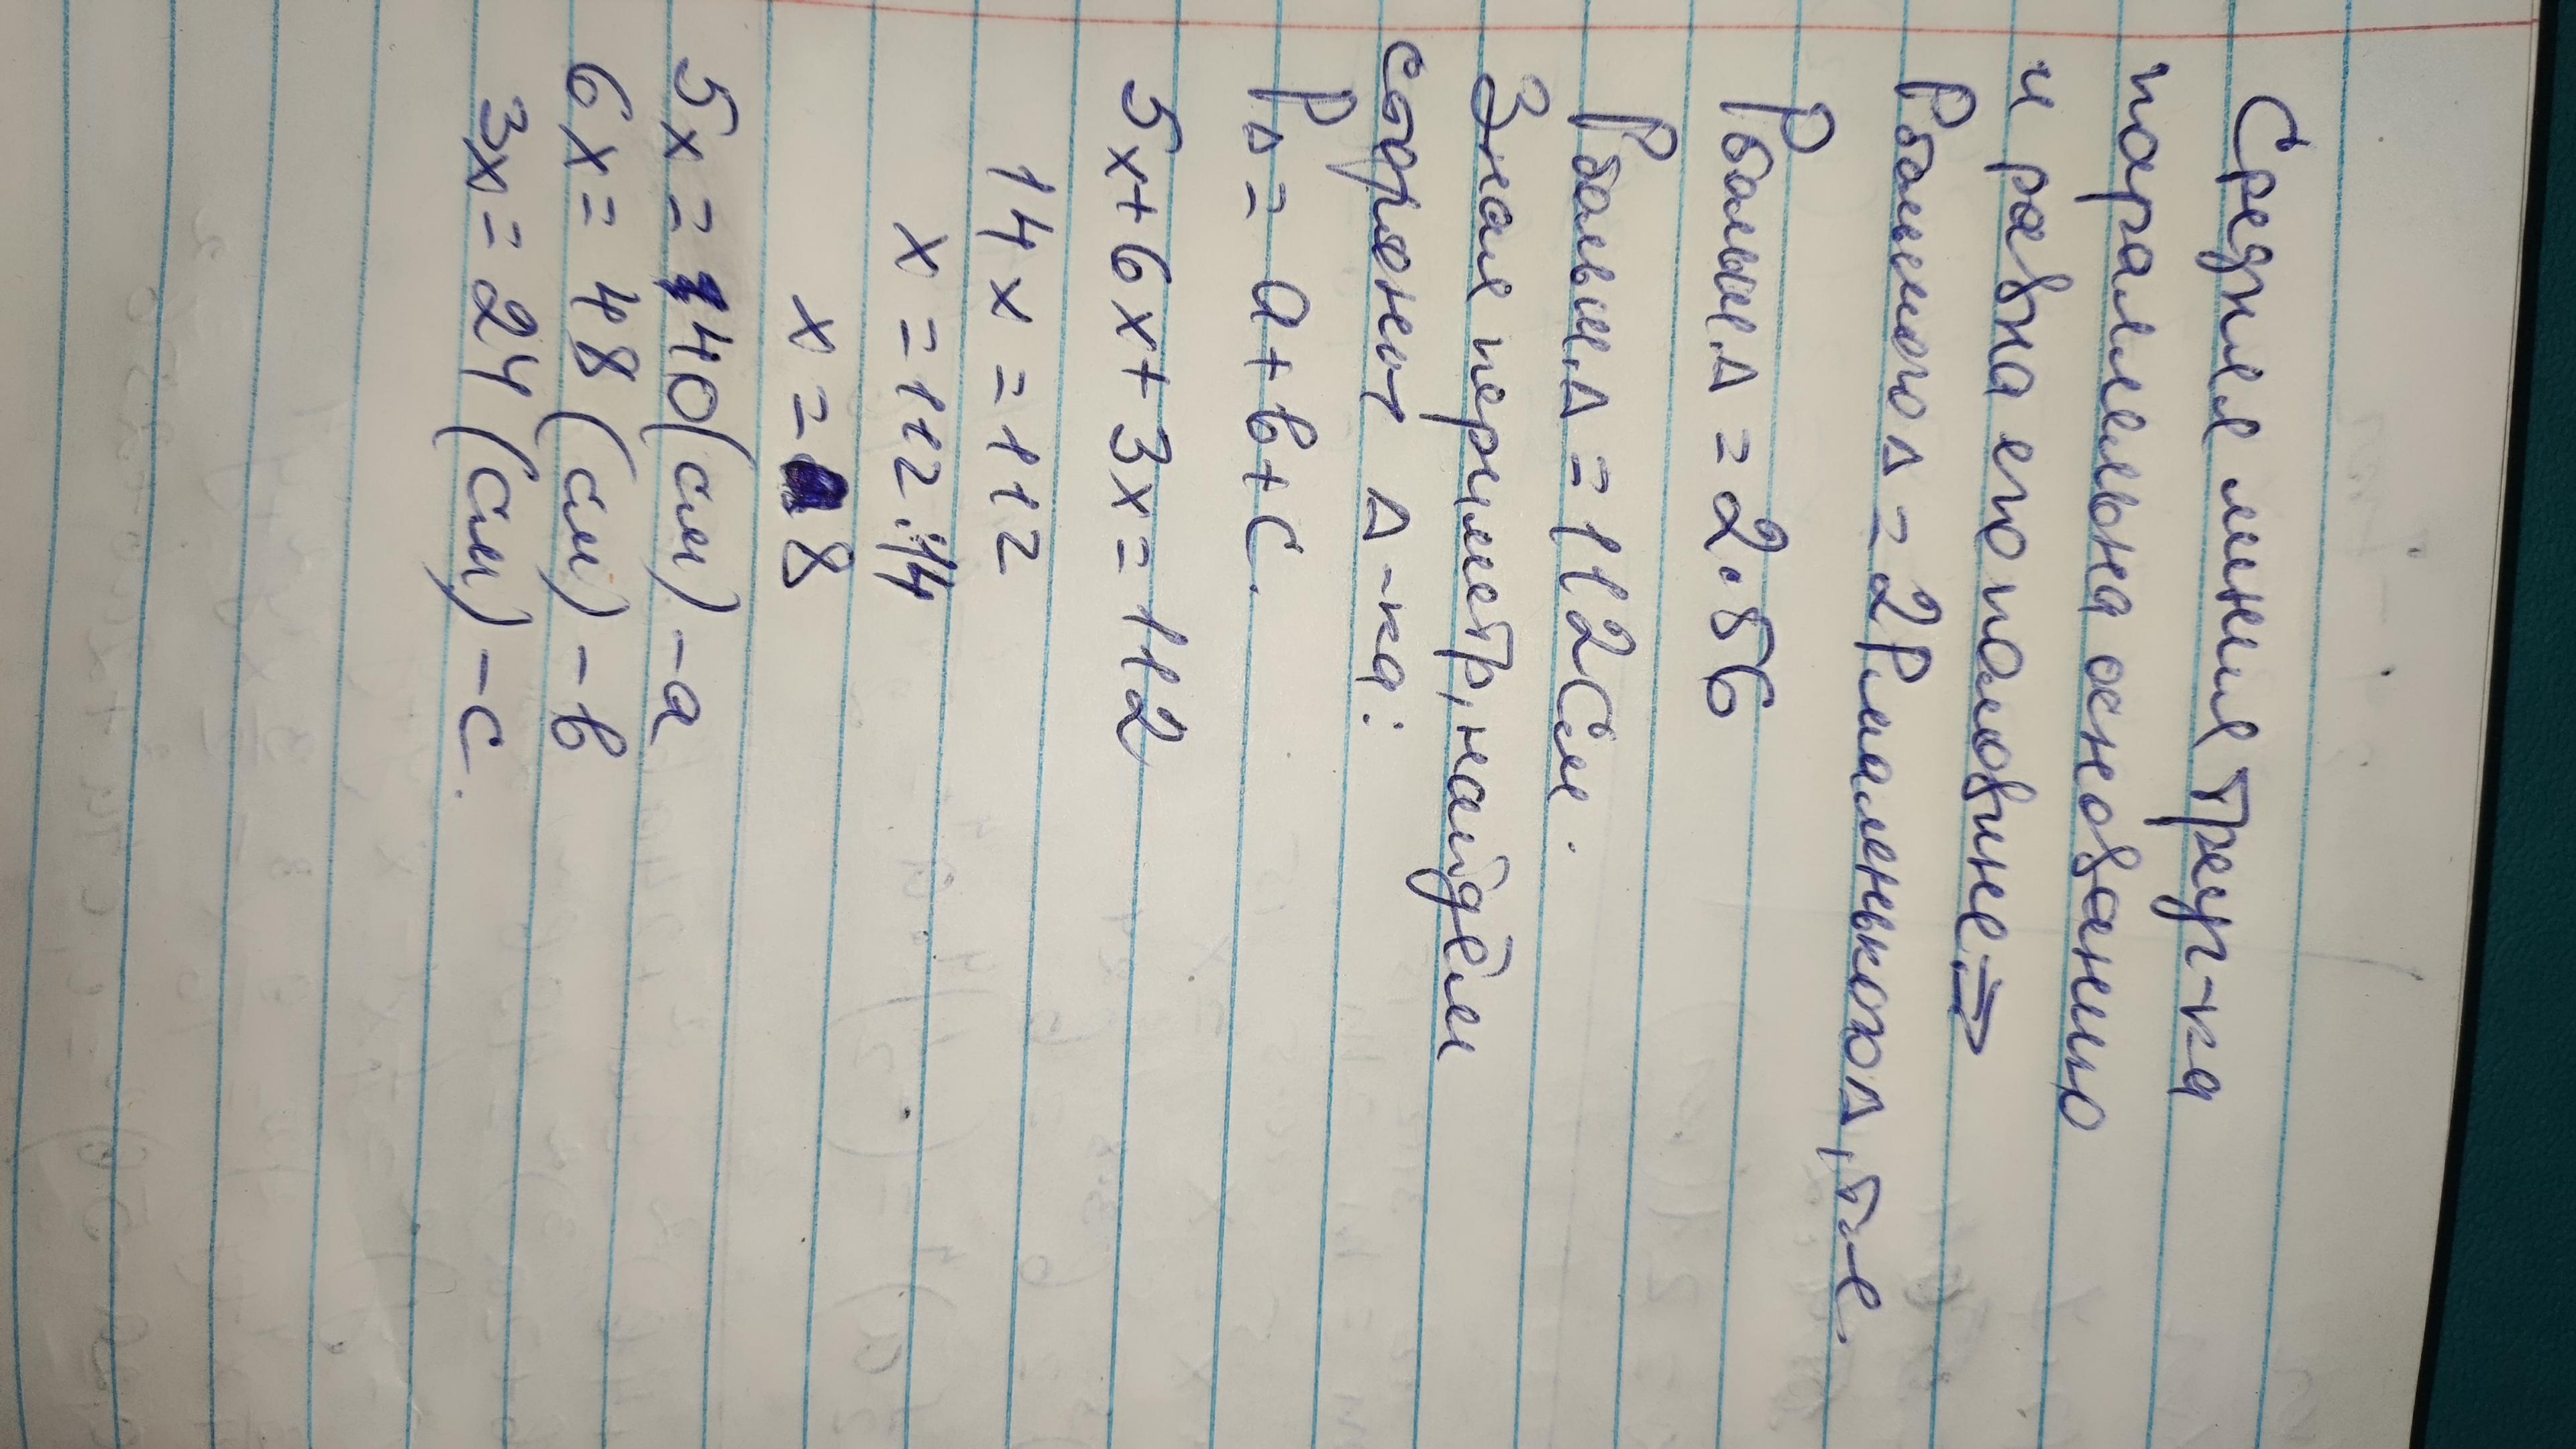 Средняя линия треуг-ка
параллельна основанию
и равна его половине ⇒
Pбольшого∆ = 2Pмаленького∆, т-е.
Pбольш.∆ = 2·56
Pбольш.∆ = 112см.
Зная периметр, найдём
стороны ∆-ка:
P∆ = a+b+c.
5x+6x+3x=112
14x = 112
x = 112:14
x = 8
5x = 40(см) - a
6x = 48(см) - b
3x = 24(см) - c.